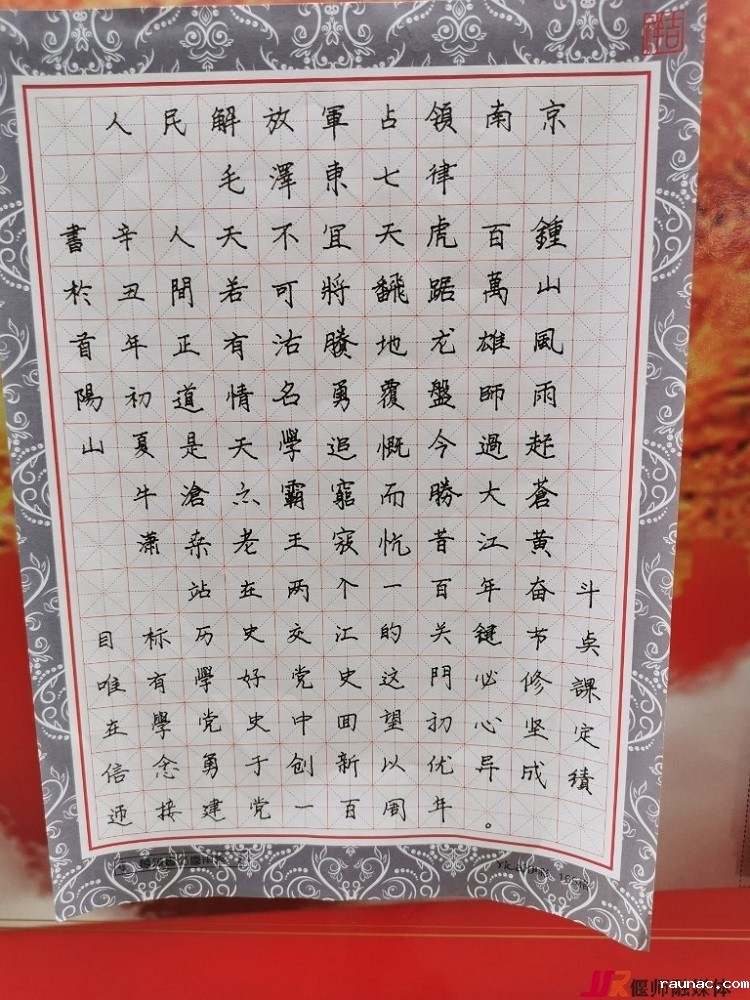 吉祥
人民解放軍占領南京
毛澤東七律
鍾山風雨起蒼黄
百萬雄師過大江
虎踞龙盤今勝昔
天飜地覆慨而忼
宜將賸勇追窮寇
不可沽名學霸王
天若有情天亦老
人間正道是滄桒
辛丑年初夏牛瀟
書於首陽山
站在两个一百年奋斗
目标历史交汇的关键节奌
唯有學好党史这門必修課
在學党史中回望初心坚定
信念勇于创新以优异成績
迎接建党一百周年。
偃师融媒体
raunac.com